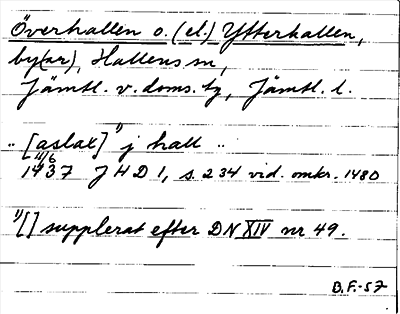 Överhallen o. (el.) Ytterhallen,
by(ar), Hallens sn,
Jämtl. v. doms. tg, Jämtl. l.
.. [aslak] 1) j hall ..
11/6
1437 JHD 1, s. 234 vid. omkr. 1480
1) [] supplerat efter DN XIV nr 49.
B.F.-57